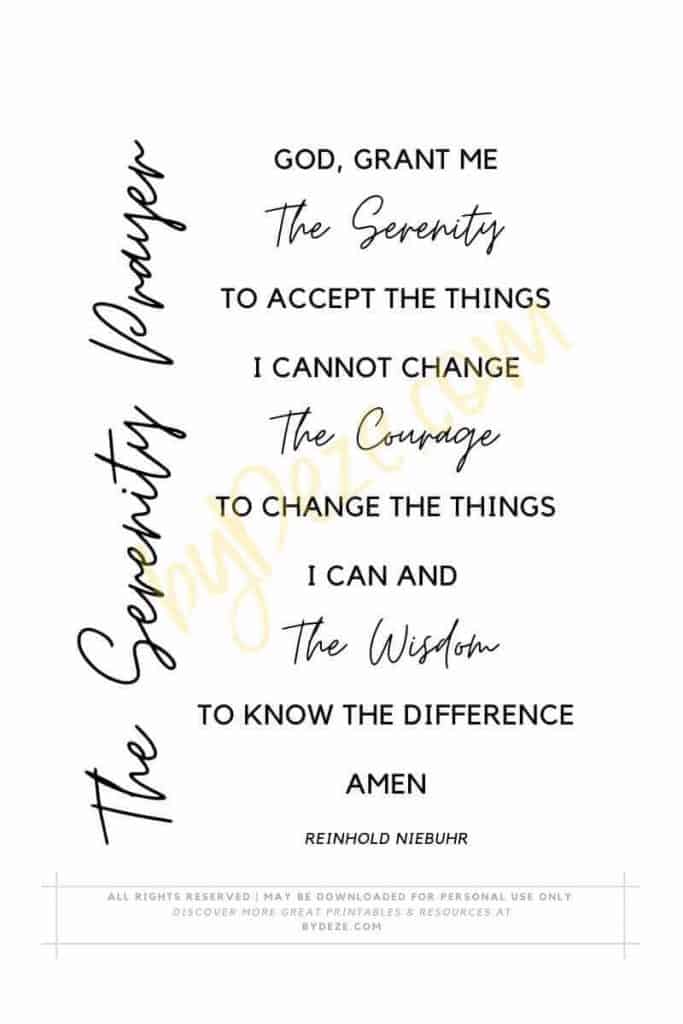 The Serenity Prayer
GOD, GRANT ME
The Serenity
TO ACCEPT THE THINGS
I CANNOT CHANGE
The Courage
TO CHANGE THE THINGS
I CAN AND
The Wisdom
TO KNOW THE DIFFERENCE
AMEN
REINHOLD NIEBUHR
byDeze.com
ALL RIGHTS RESERVED | MAY BE DOWNLOADED FOR PERSONAL USE ONLY
DISCOVER MORE GREAT PRINTABLES & RESOURCES AT
BYDEZE.COM